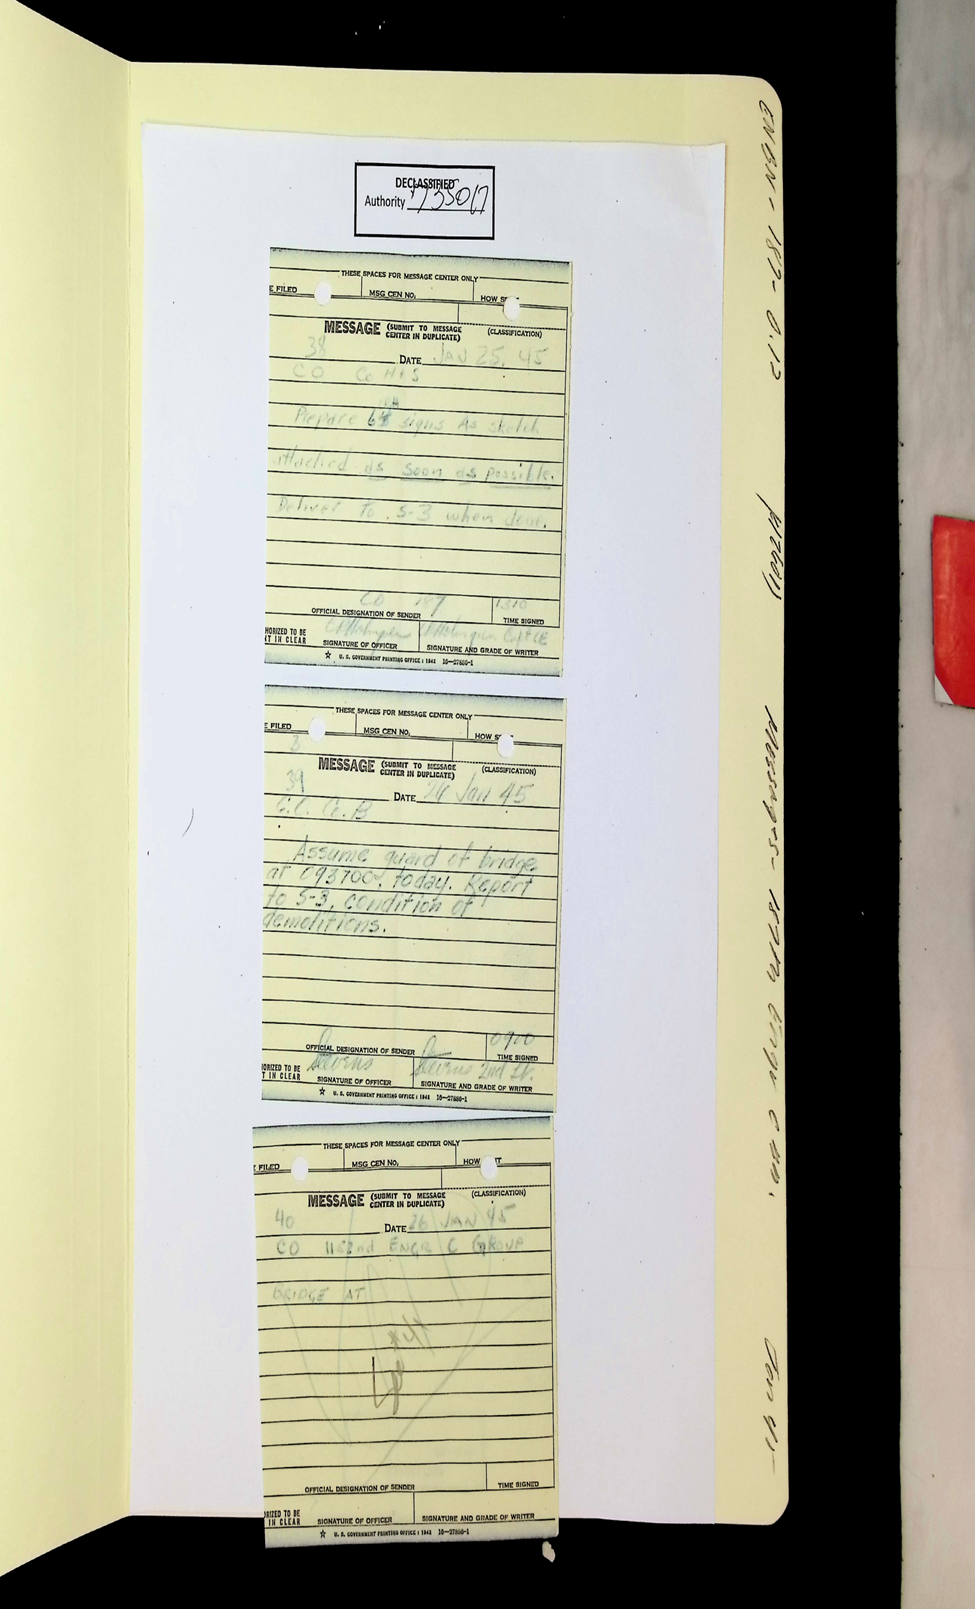 DECLASSIFIED
Authority 735017
THESE SPACES FOR MESSAGE CENTER ONLY
E FILED MSG CEN NO. HOW S
MESSAGE (SUBMIT TO MESSAGE CENTER IN DUPLICATE) (CLASSIFICATION)
38 DATE JAN 25, 45
CO Co H+S
Prepare signs As sketch
attached as soon as possible.
Deliver to S-3 when done.
CO 187 1310
OFFICIAL DESIGNATION OF SENDER TIME SIGNED
HORIZED TO BE
T IN CLEAR SIGNATURE OF OFFICER SIGNATURE AND GRADE OF WRITER
☆ U. S. GOVERNMENT PRINTING OFFICE : 1942 16—27880-1
THESE SPACES FOR MESSAGE CENTER ONLY
E FILED MSG CEN NO. HOW S
3
MESSAGE (SUBMIT TO MESSAGE CENTER IN DUPLICATE) (CLASSIFICATION)
39 DATE 26 Jan 45
C.O. Co. B
Assume guard of bridge
at 093700 today. Report
to S-3, condition of
demolitions.
0900
OFFICIAL DESIGNATION OF SENDER TIME SIGNED
Stevens Stevens 2nd Lt.
ORIZED TO BE
T IN CLEAR SIGNATURE OF OFFICER SIGNATURE AND GRADE OF WRITER
☆ U. S. GOVERNMENT PRINTING OFFICE : 1942 16—27880-1
THESE SPACES FOR MESSAGE CENTER ONLY
E FILED MSG CEN NO. HOW NT
MESSAGE (SUBMIT TO MESSAGE CENTER IN DUPLICATE) (CLASSIFICATION)
40 DATE 26 JAN 45
CO 1152nd ENGR C GROUP
BRIDGE AT
OFFICIAL DESIGNATION OF SENDER TIME SIGNED
RIZED TO BE
IN CLEAR SIGNATURE OF OFFICER SIGNATURE AND GRADE OF WRITER
☆ U. S. GOVERNMENT PRINTING OFFICE : 1942 16—27880-1
ENBN-187-0.12 Messages- 187th Engr C Bn. Jan 45